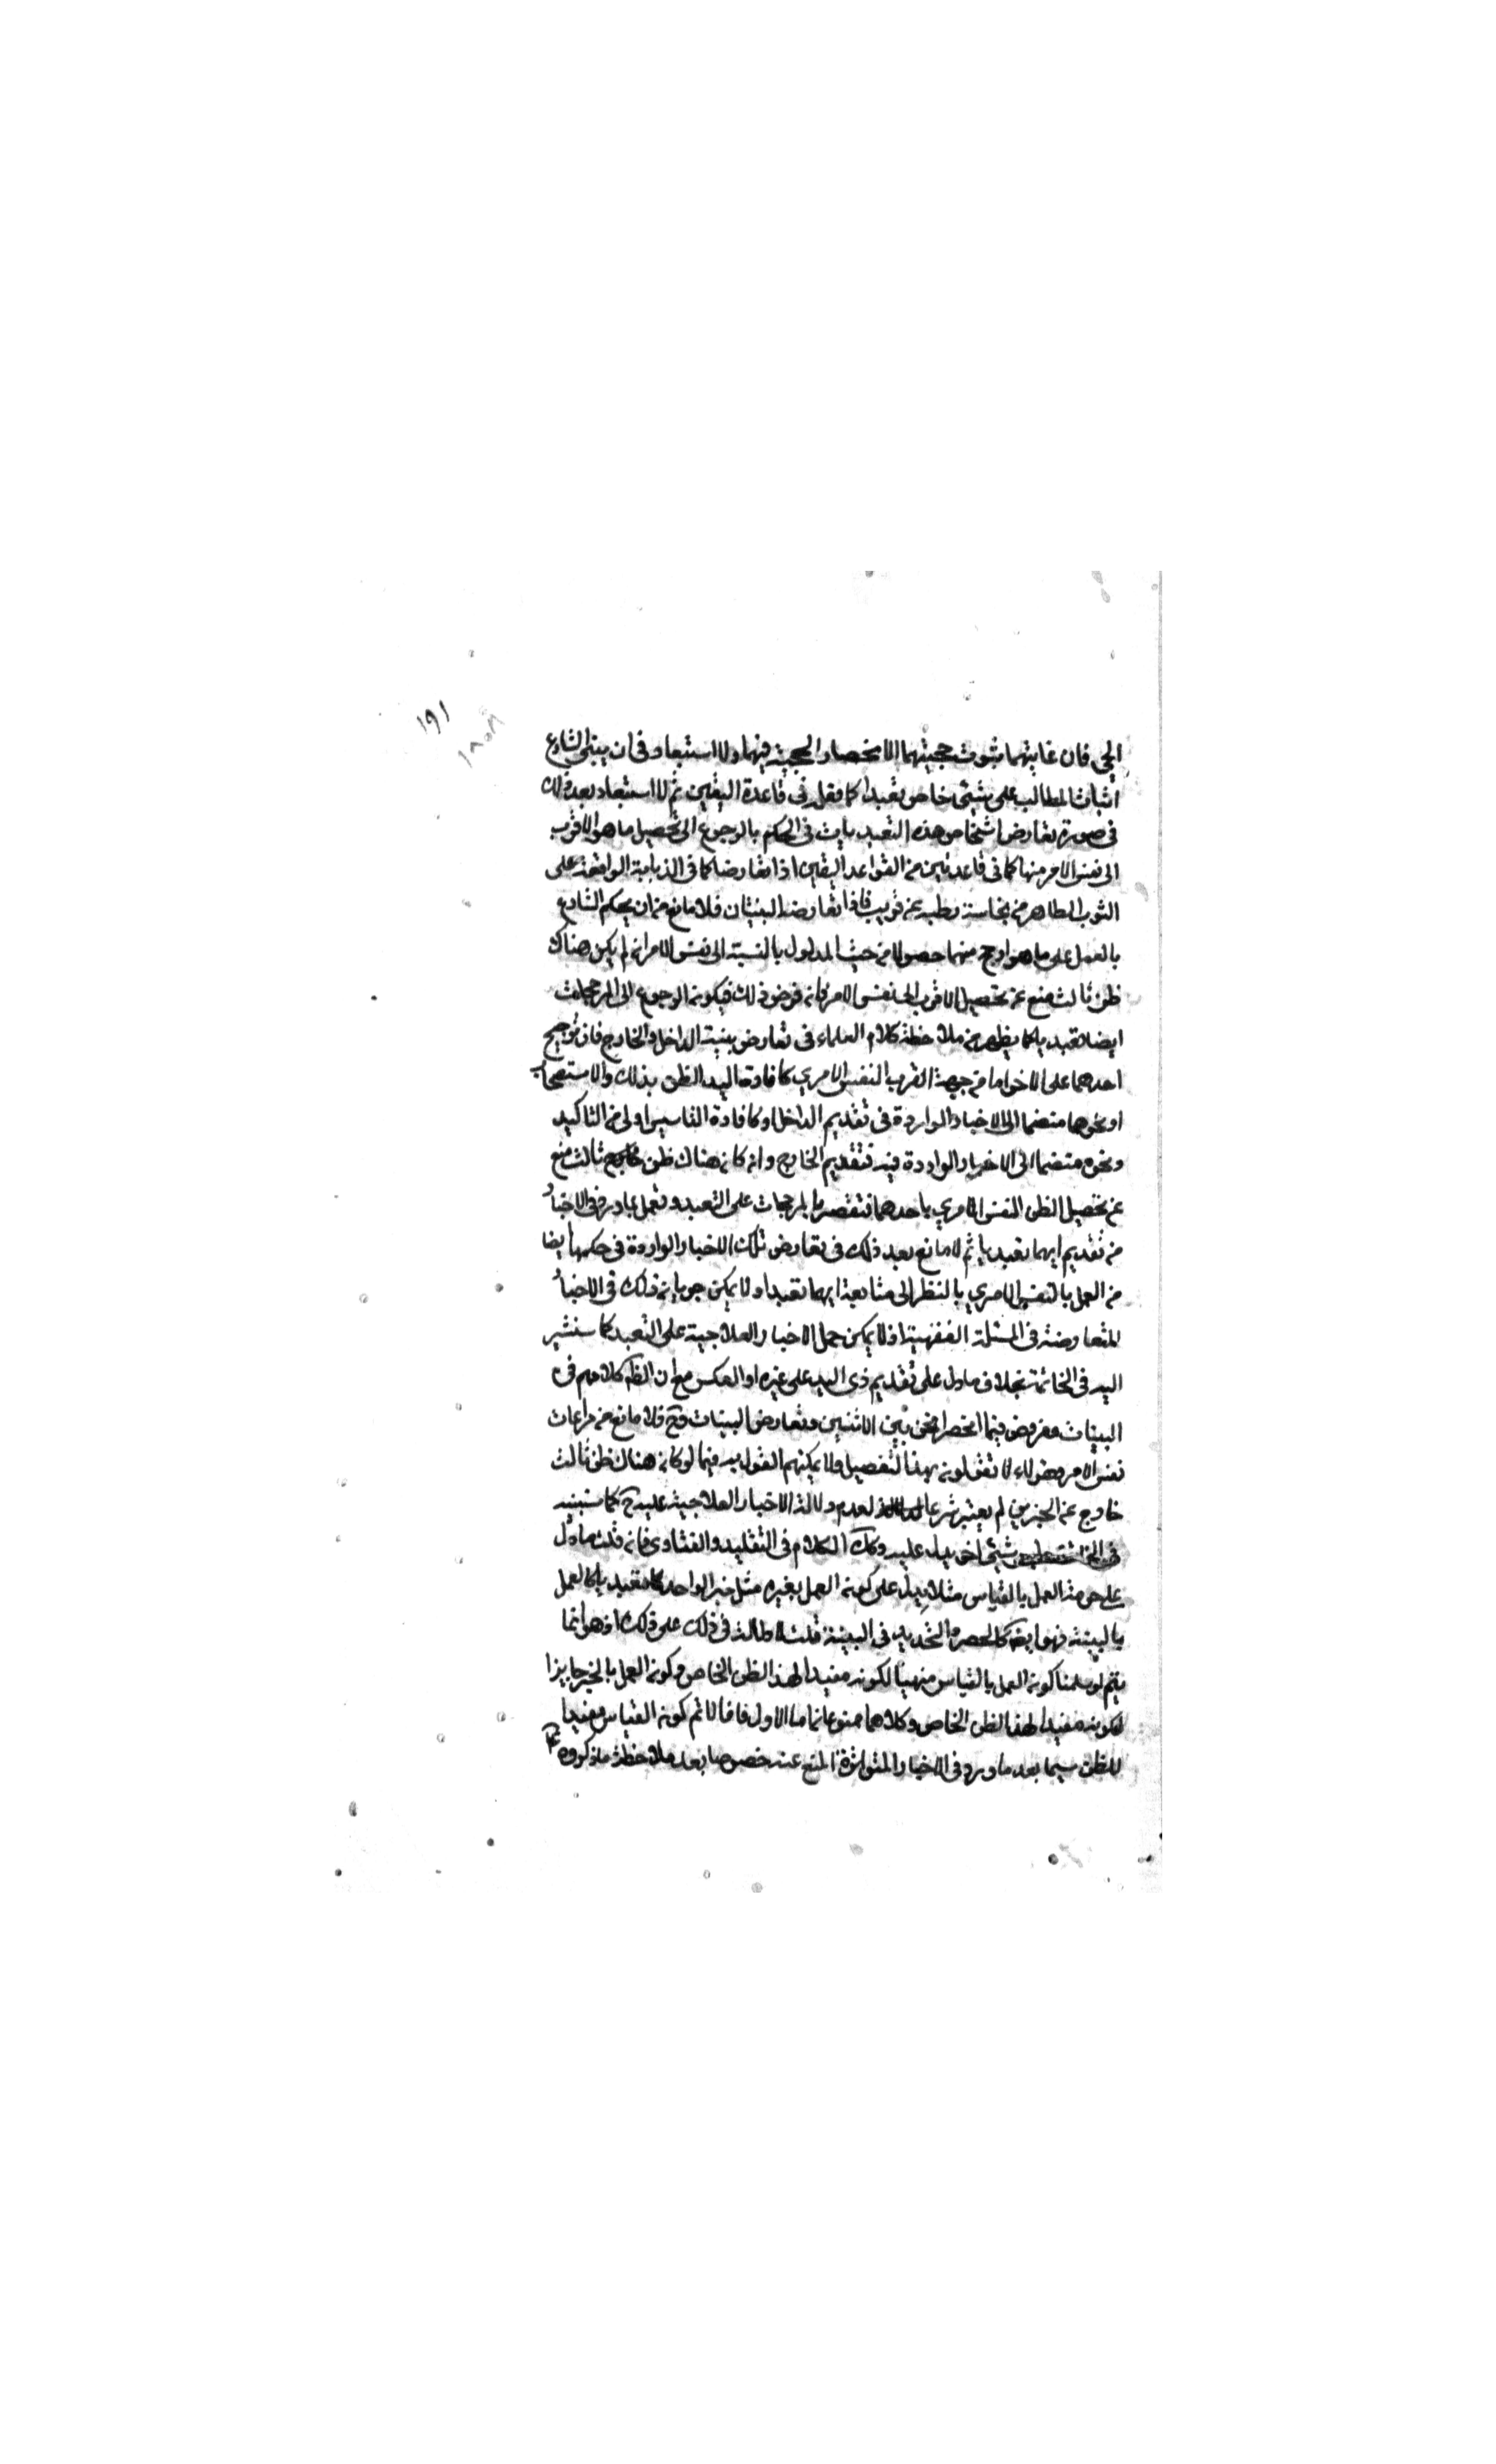 ١٩١
الحي فان غايتهما ثبوت حجيتهما لا انحصار الحجية فيهما ولا استبعاد في ان يبني الشارع
اثبات المطالب على شيئى خاص تعبدا كما فعل في قاعدة اليقين ثم لا استبعاد بعد ذلك
في صورة تعارض اشخاص هذه التعبديات في الحكم بالرجوع الى تحصيل ما هو الاقرب
الى نفس الامر منها كما في قاعدتين من القواعد اليقين اذا تعارضا كما في الذبابة الواقعة على
الثوب الطاهر من نجاسة رطبة عن قريب فاذا تعارض البينتان فلا مانع من ان يحكم الشارع
بالعمل على ما هو ارجح منهما حصولا من حيث المدلول بالنسبة الى نفس الامر ان لم يكن هناك
ظن ثالث منع عن تحصيل الاقرب الى نفس الامر وان فرض ذلك فيكون الرجوع الى المرجحات
ايضا تعبديا كما يظهر من ملاحظة كلام العلماء في تعارض بينة الداخل والخارج فان ترجيح
احدهما على الاخر اما من جهة القرب النفس الامري كافادة اليد الظن بذلك والاستصحاب
او نحوهما منضما الى الاخبار الواردة في تقديم الداخل او كافادة التاسيس اولى من التاكيد
ونحوه منضما الى الاخبار الواردة فيه فتقديم الخارج وان كان هناك ظن ثالث منع
عن تحصيل الظن النفس الامري باحدهما فتقتصر بالمرجحات على التعبد ونعمل بما ورد في الاخبار
من تقديم ايهما تعبديا ثم لا مانع بعد ذلك في تعارض تلك الاخبار الواردة في حكمها ايضا
من العمل بالنفس الامري بالنظر الى متابعة ايهما تعبدا ولا يمكن جريان ذلك في الاخبار
المتعارضة في المسئلة الفقهية اذ لا يمكن حمل الاخبار العلاجية على التعبد كما سنشير
اليه في الخاتمة بخلاف ما دل على تقديم ذي اليد على غيره او العكس مع ان الظ كلامهم في
البينات مفروض فيما انحصر الحق بين الاثنين وتعارض البينات وح فلا مانع من مراعات
نفس الامر وهؤلاء لا تقولون بهذا التفصيل ولا يمكنهم القول به فيما لو كان هناك ظن ثالث
خارج عن الخبرين لم يعتبر شرعا لعدم دلالة الاخبار العلاجية عليه ح كما سنبينه
في الخاتمة شيئى اخر يدل عليه وكك الكلام في التقليد والفتاوى فان قلت ما دل
على حرمة العمل بالقياس مثلا يدل على كون العمل بغيره مثل خبر الواحد تعبديا كالعمل
بالبينة فهو ايض كالحصر والتحديد في البينة قلت لا دلالة في ذلك على ذلك اذ هو انما
يتم لو سلمنا كون العمل بالقياس منهيا لكونه مفيدا لهذا الظن الخاص وكون العمل بالخبر جايزا
لكونه مفيدا لهذا الظن الخاص وكلاهما ممنوعان اما الاول فانا لا نم كون القياس مفيدا
للظن سيما بعد ما ورد في الاخبار المتواترة المنع عنه خصوصا بعد ملاحظة ما ذكروه